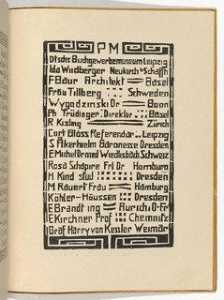 PM
Dtschs Buchgewerbemuseum Leipzig
Ida Windberger Neukirch Schaffh
F Baur Architekt Basel
Frau Tillberg Schweden
Wygodzinski Dr Bonn
Ph Trüdinger Direktor Basel
R Kisling Zürich
Cort Bläss Referendar Leipzig
S Åkerhelm Baronesse Dresden
E Michel Dr med Wiedlisbach Schweiz
Rosa Schapire Frl Dr Hamburg
H Kind stud Dresden
M Rauert Frau Hamburg
Köhler-Häussen Dresden
E Brandting Aurich O-Fr
E Kirchner Prof Chemnitz
Graf Harry von Kessler Weimar